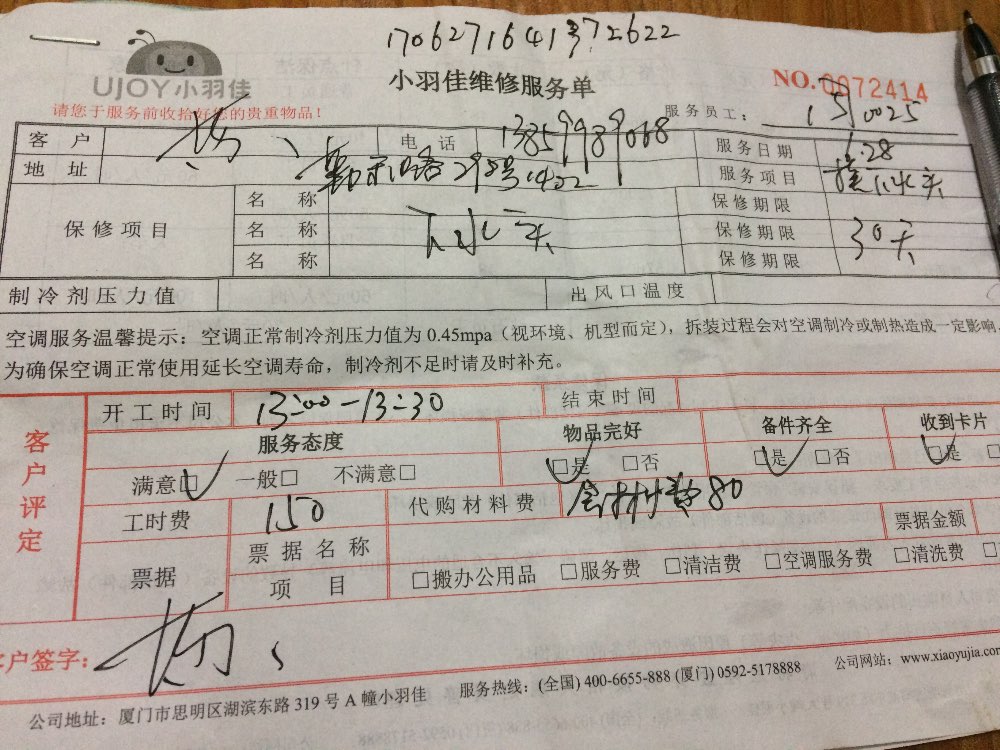 1706271641372622
UJOY小羽佳
小羽佳维修服务单
NO.0072414
请您于服务前收拾好您的贵重物品！
服务员工： 0025
客 户 杨 电 话 13859989068 服务日期 6.28
地 址 路298号1402 服务项目 换下水头
保修项目 名 称 保修期限
名 称 下水头 保修期限 30天
名 称 保修期限
制冷剂压力值 出风口温度
空调服务温馨提示：空调正常制冷剂压力值为 0.45mpa（视环境、机型而定），拆装过程会对空调制冷或制热造成一定影响，
为确保空调正常使用延长空调寿命，制冷剂不足时请及时补充。
客户评定
开工时间 13:00-13:30 结束时间
服务态度 物品完好 备件齐全 收到卡片
满意□ 一般□ 不满意□ □是 □否 □是 □否 □是
工时费 150 代购材料费 含材料费80 票据金额
票据 票据名称
项 目 □搬办公用品 □服务费 □清洁费 □空调服务费 □清洗费
客户签字： 杨
公司地址：厦门市思明区湖滨东路 319 号 A 幢小羽佳 服务热线：(全国) 400-6655-888 (厦门) 0592-5178888 公司网站：www.xiaoyujia.com